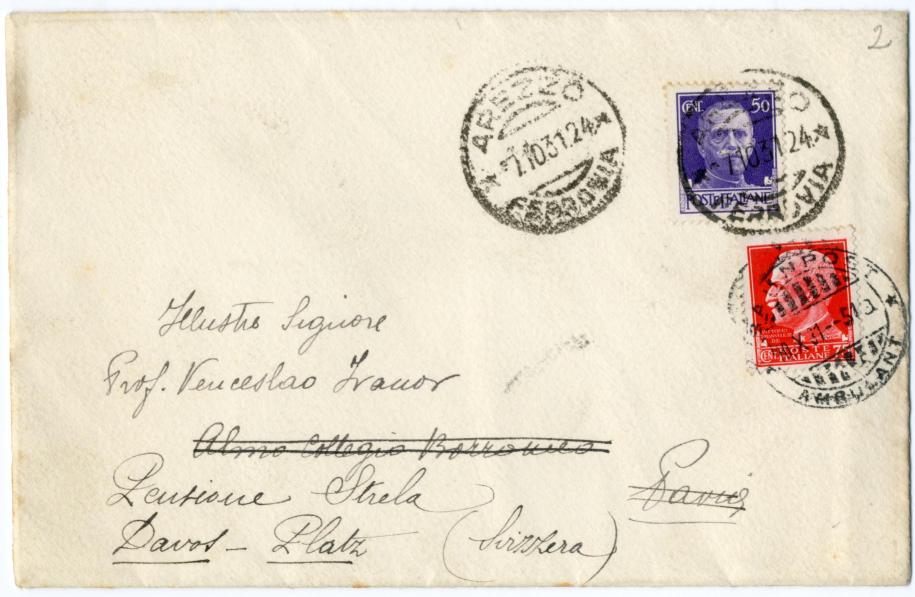 2
AREZZO
7.10.31.24
FERROVIA
CENT. 50
POSTE ITALIANE
AREZZO
7.10.31.24
FERROVIA
POSTE
ITALIANE
AMBULANT
Illustre Signore
Prof. Venceslao Ivanov
Almo Collegio Borromeo
Pensione Strela
Pavia
Davos - Platz
(Svizzera)